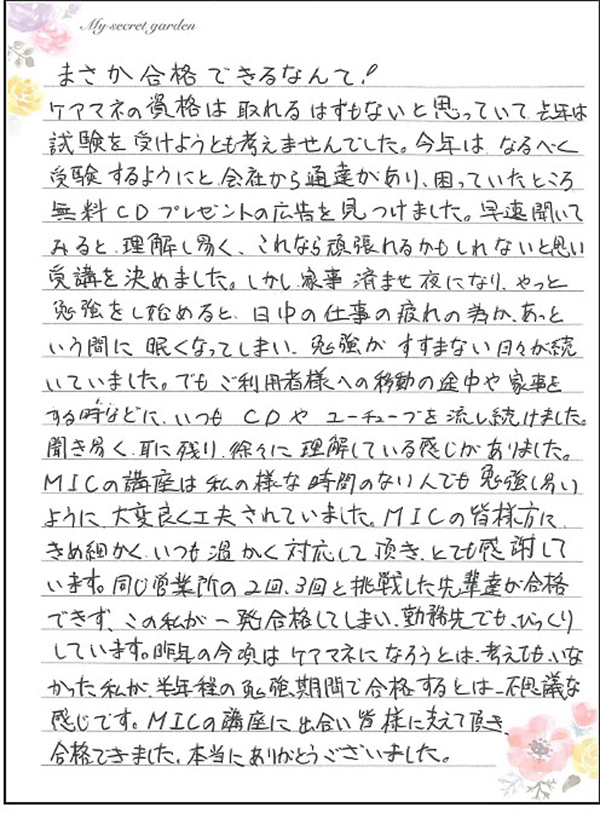 My secret garden
まさか合格できるなんて!
ケアマネの資格は取れるはずもないと思っていて去年は
試験を受けようとも考えませんでした。今年は、なるべく
受験するようにと、会社から通達があり、困っていたところ
無料CDプレゼントの広告を見つけました。早速聞いて
みると、理解し易く、これなら頑張れるかもしれないと思い
受講を決めました。しかし、家事済ませ夜になり、やっと
勉強をし始めると、日中の仕事の疲れの為か、あっと
いう間に眠くなってしまい、勉強がすすまない日々が続
いていました。でもご利用者様への移動の途中や家事を
する時などに、いつもCDやユーチューブを流し続けました。
聞き易く、耳に残り、徐々に理解している感じがありました。
MICの講座は私の様な時間のない人でも勉強し易い
ように、大変良く工夫されていました。MICの皆様方に
きめ細かく、いつも温かく対応して頂き、とても感謝して
います。同じ営業所の2回、3回と挑戦した先輩達が合格
できず、この私が一発合格してしまい、勤務先でも、びっくり
しています。昨年の今頃はケアマネになろうとは、考えてもいな
かった私が、半年程の勉強期間で合格するとは、不思議な
感じです。MICの講座に出合い皆様に支えて頂き、
合格できました。本当にありがとうございました。